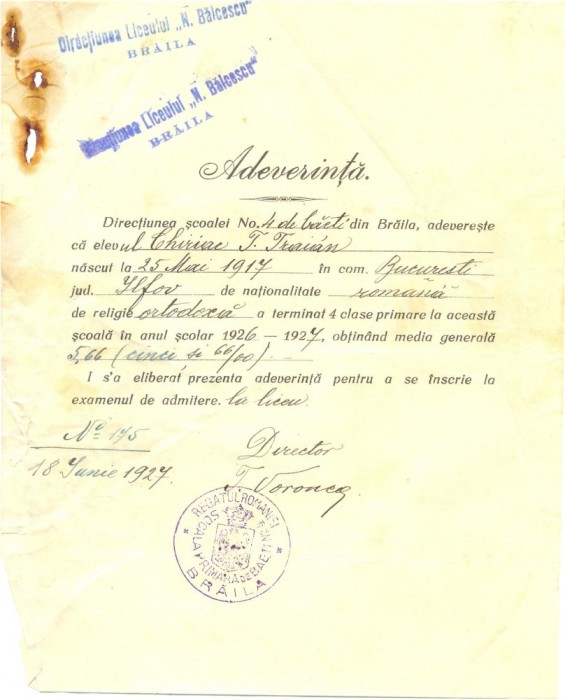 Direcțiunea Liceului „N. Bălcescu"
BRĂILA
Direcțiunea Liceului „N. Bălcescu"
BRĂILA
Adeverință.
Direcțiunea școalei No. 4 de băeti din Brăila, adeverește
că elevul Chiriac T. Traian
născut la 25 Mai 1917 în com. Bucuresti
jud. Ilfov de naționalitate română
de religie ortodoxă a terminat 4 clase primare la această
școală în anul școlar 1926 — 1927, obținând media generală
5,66 (cinci si 66/00)
I s'a eliberat prezenta adeverință pentru a se înscrie la
examenul de admitere. la liceu.
No 175
Director
18 Iunie 1927.
T. Voronca
REGATUL ROMÂNIEI
ȘCOALA PRIMARĂ DE BAEȚI No 4
BRĂILA